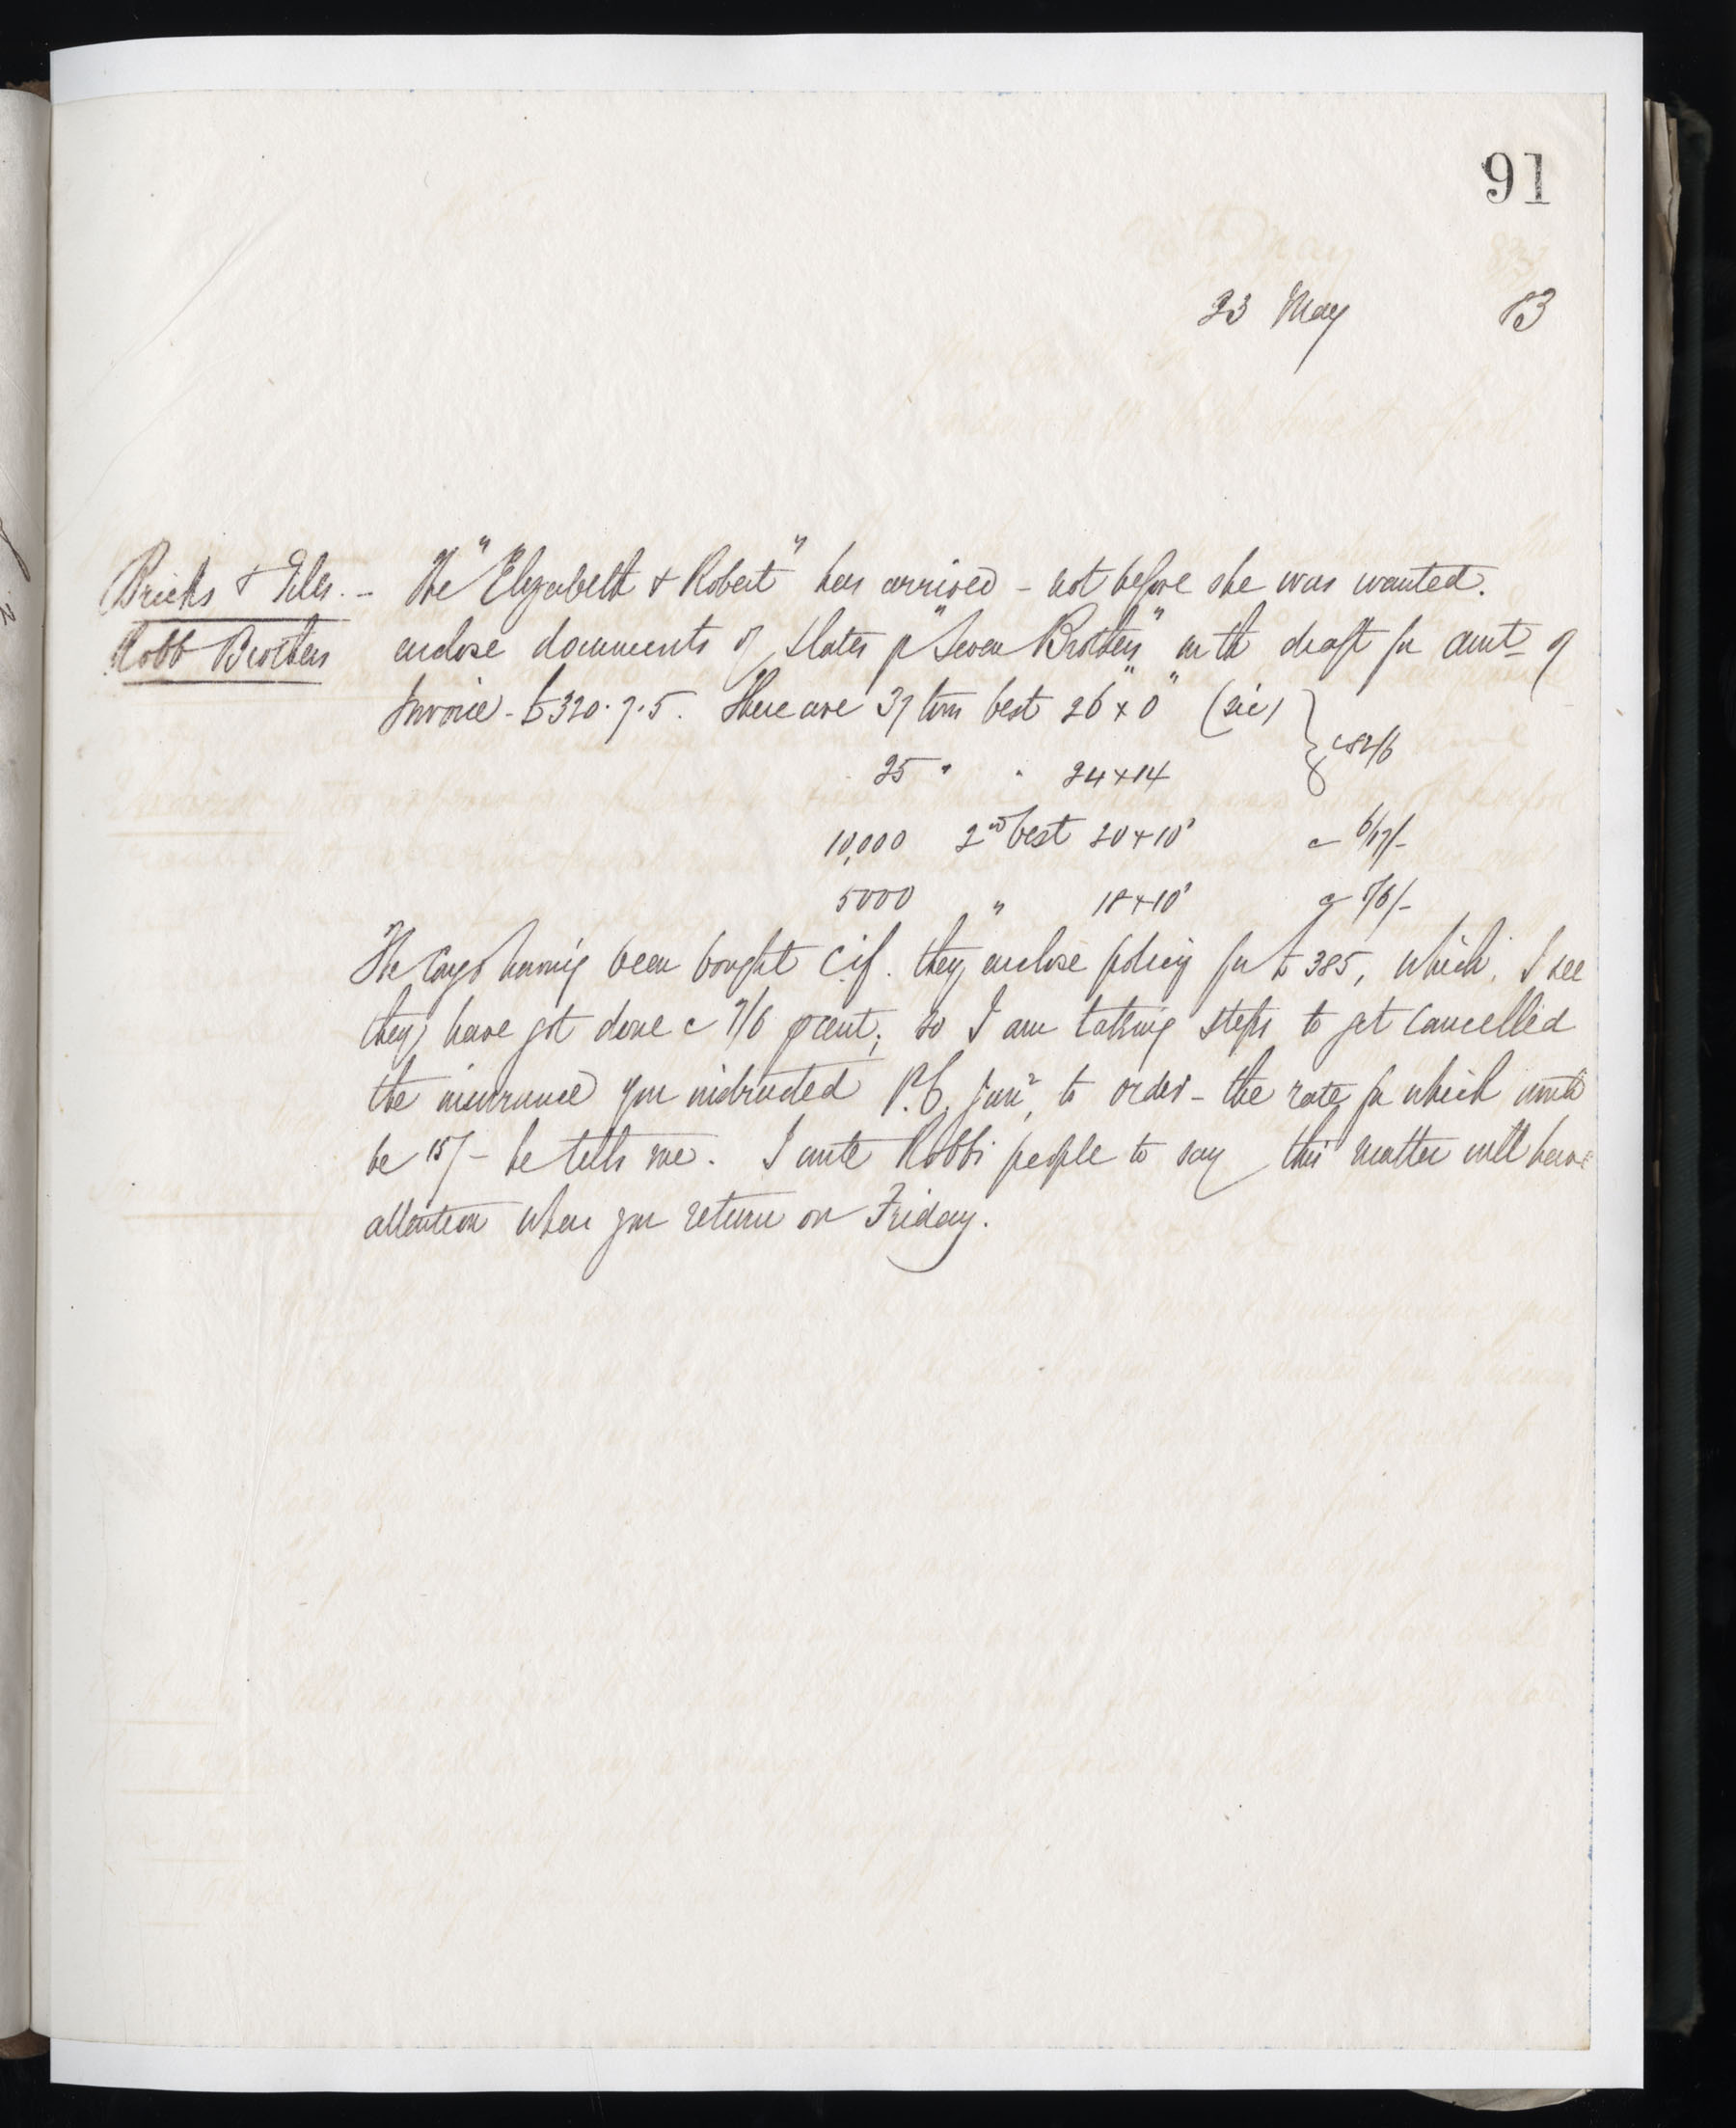 91
23 May 83
Bricks & Tiles. - The "Elizabeth & Robert" has arrived - not before she was wanted.
Robb Brothers enclose documents of slates p "Seven Brothers" with draft for amt of
Invoice - £320.7.5. There are 37 tons best 26" x 0" (sic)
25 " " 24 x 14 } c 82/6
10,000 2nd best 20 x 10" c 6/17/-
5000 " 18 x 10" c /6/-
The Cargo having been bought c.i.f. they enclose policy for £385, which, I see
they have got done c 7/6 pcent; so I am taking steps to get cancelled
the insurance you instructed P.C. junr, to order - the rate for which would
be 15/- he tells me. I write Robb's people to say this matter will have
attention when you return on Friday.